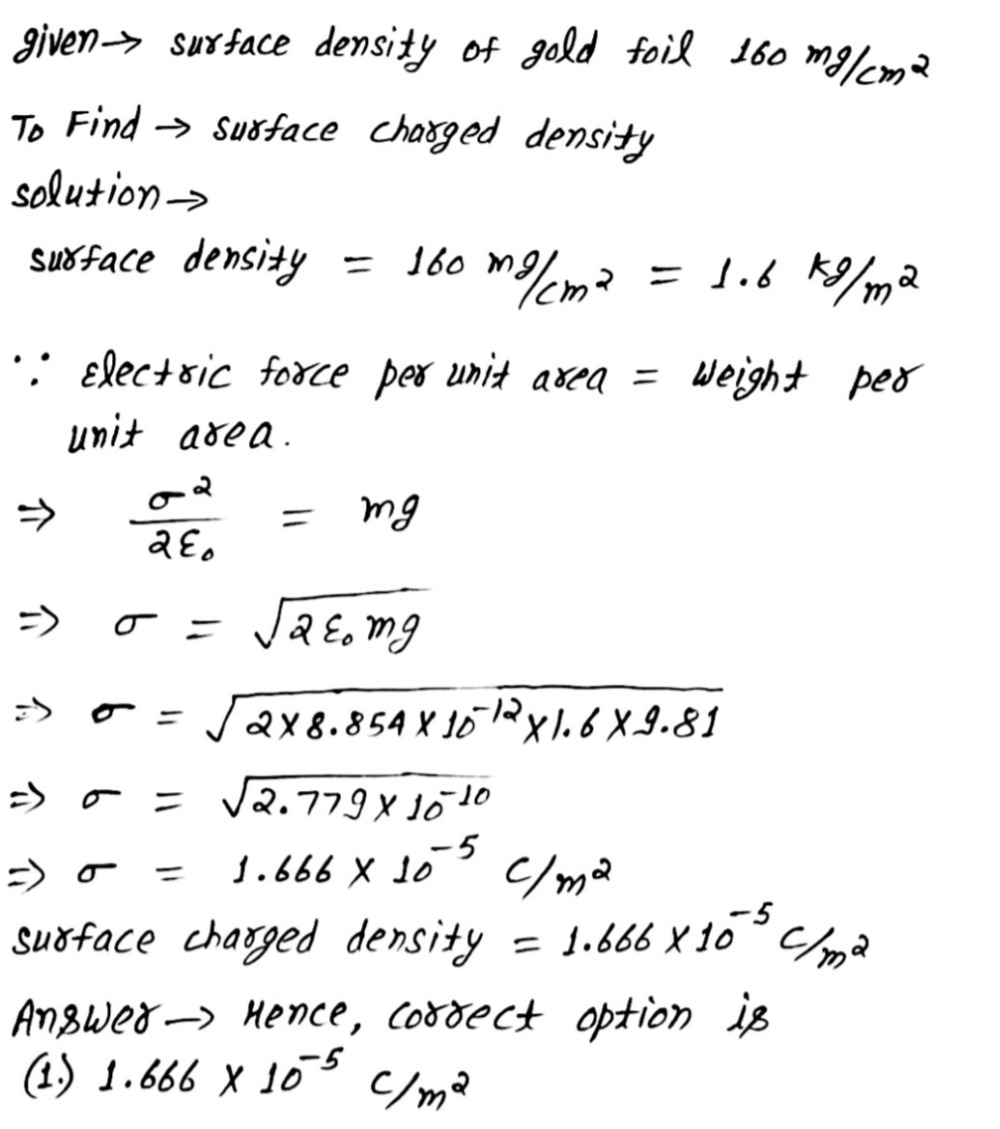 given→ surface density of gold foil 160 mg/cm²
To Find → surface charged density
solution→
surface density = 160 mg/cm² = 1.6 kg/m²
∵ Electric force per unit area = Weight per
unit area.
⇒ σ²/2ε₀ = mg
⇒ σ = √(2ε₀mg)
⇒ σ = √(2×8.854×10⁻¹²×1.6×9.81)
⇒ σ = √(2.779×10⁻¹⁰)
⇒ σ = 1.666 × 10⁻⁵ C/m²
surface charged density = 1.666 × 10⁻⁵ C/m²
Answer → Hence, correct option is
(1.) 1.666 × 10⁻⁵ C/m²